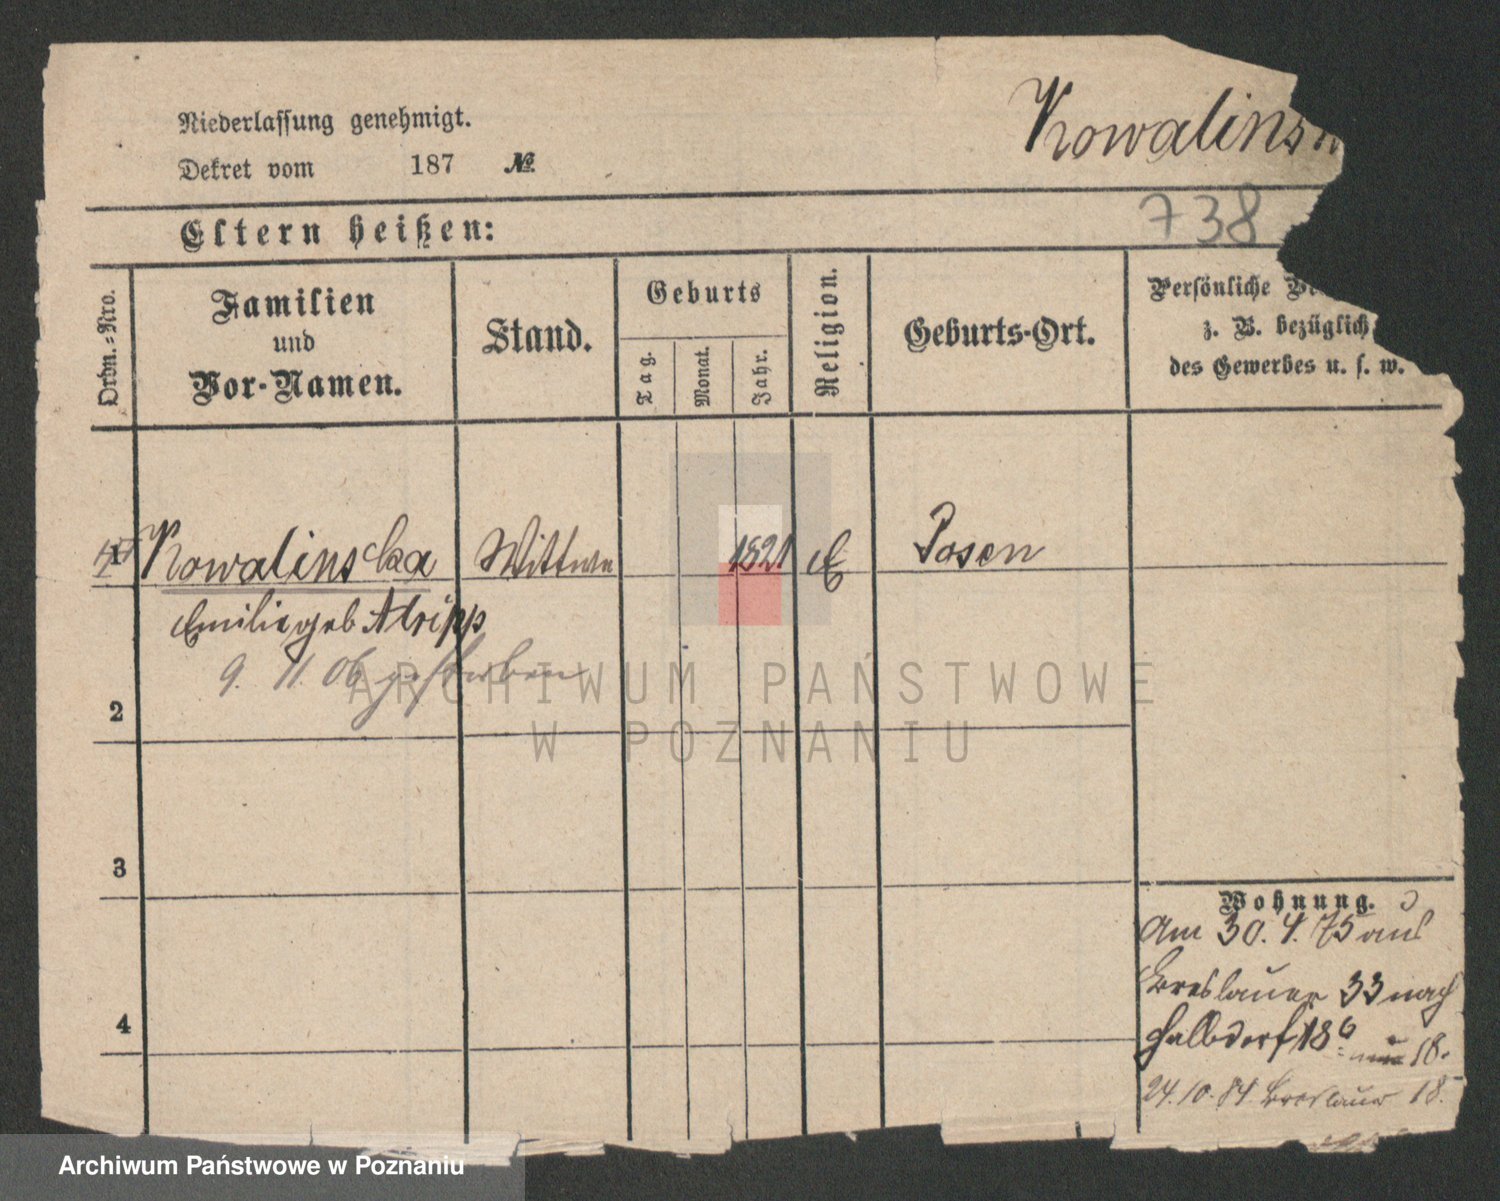 Niederlassung genehmigt.
Kowalinsk
Dekret vom 187 №
Eltern heißen:
738
Ordn.-Nro.
Familien
und
Vor-Namen.
Stand.
Geburts
Tag.
Monat.
Jahr.
Religion.
Geburts-Ort.
Persönliche
z. B. bezüglich
des Gewerbes u. s. w.
1 Kowalinska Wittwe 1821 E Posen
Emilie geb
9. 11. 06 gestorben
2
3
4
Wohnung.
Am 30. 4. 75 aus
Breslauer 33 nach
Halbdorf 18
18.
24.10.84. Breslauer 18.
ARCHIWUM PAŃSTWOWE
W POZNANIU
Archiwum Państwowe w Poznaniu